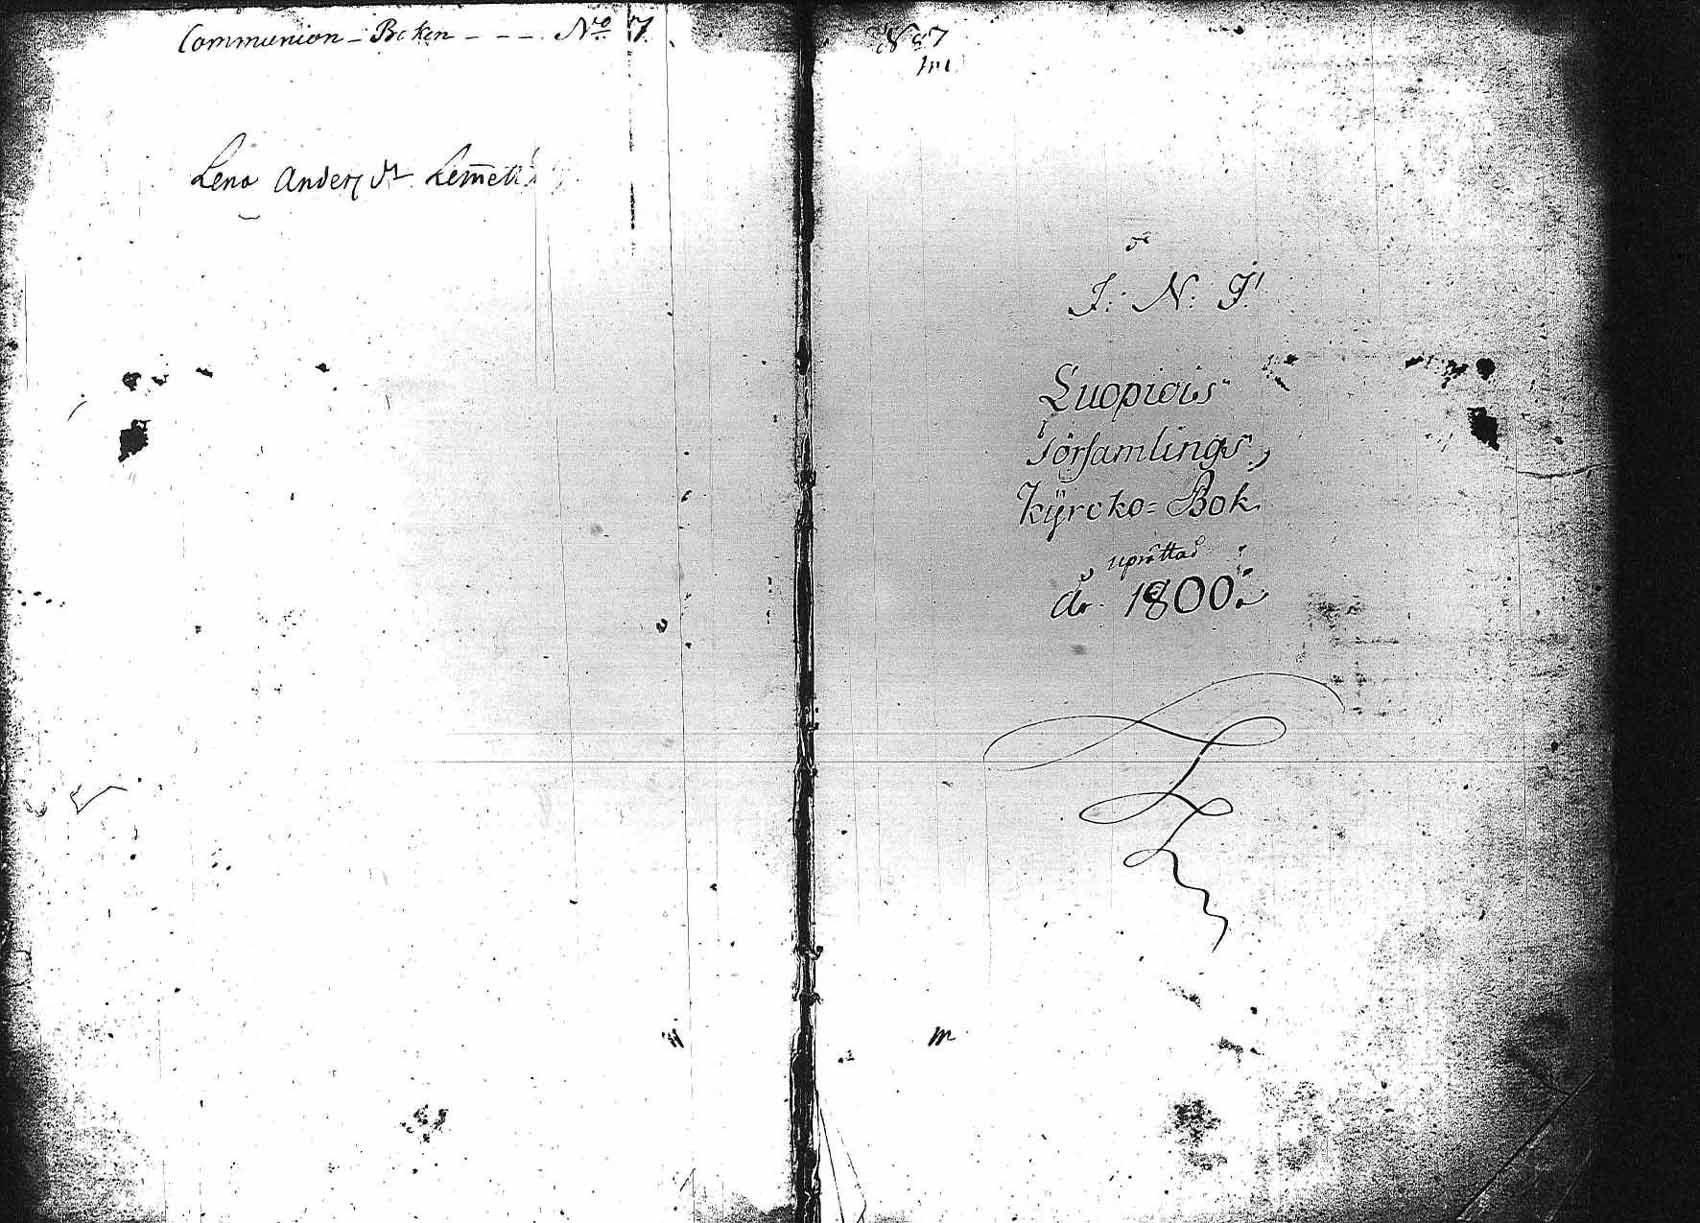 Communion-Boken - - - No 7
Lena Anders dr
No 7
I: N: J:
Luopiois
Församlings,
Kÿrcko=Bok
uprättad
År 1800.